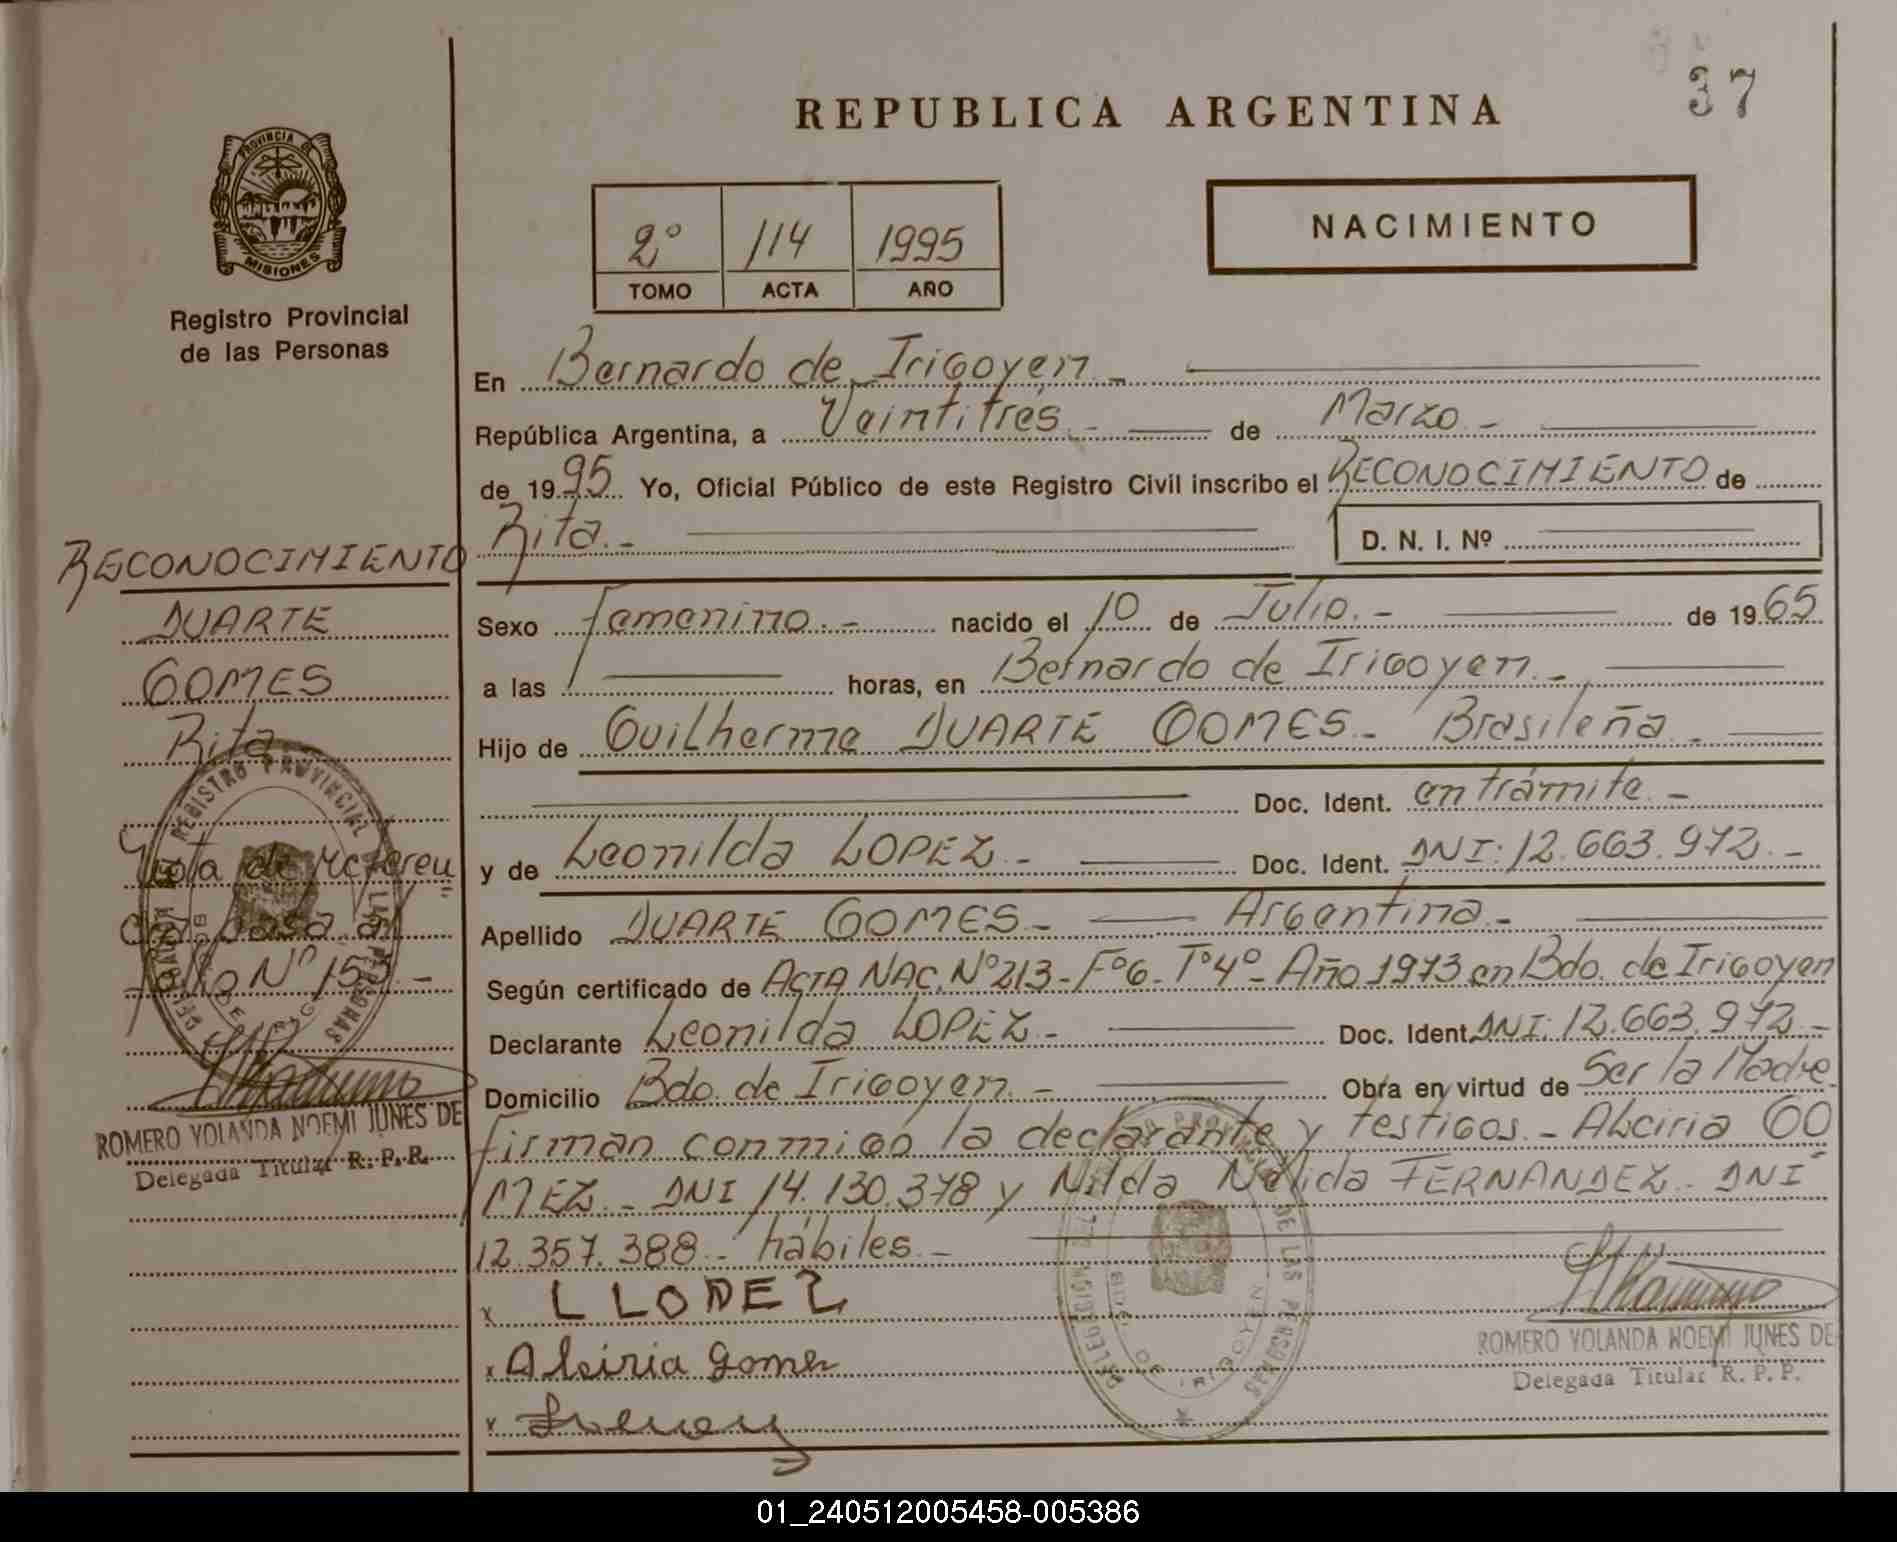 37
REPUBLICA ARGENTINA
PROVINCIA DE
MISIONES
Registro Provincial
de las Personas
2º 114 1995
TOMO ACTA AÑO
NACIMIENTO
En Bernardo de Irigoyen.-
República Argentina, a Veintitrés.- de Marzo.-
de 1995 Yo, Oficial Público de este Registro Civil inscribo el RECONOCIMIENTO de
Rita.- D. N. I. Nº
Sexo femenino.- nacido el 10 de Julio.- de 1965
a las horas, en Bernardo de Irigoyen.-
Hijo de Guilherme DUARTE GOMES.- Brasileña.-
Doc. Ident. en trámite.-
y de Leonilda LOPEZ.- Doc. Ident. DNI: 12.663.972.-
Apellido DUARTE GOMES.- Argentina.-
Según certificado de ACTA NAC. Nº 213-Fº6-Tº4º-Año 1973 en Bdo. de Irigoyen
Declarante Leonilda LOPEZ.- Doc. Ident. DNI: 12.663.972.-
Domicilio Bdo. de Irigoyen.- Obra en virtud de Ser la Madre
firman conmigo la declarante y testigos.- Alciria GO
MEZ.- DNI 14.130.378 y Nilda Nélida FERNANDEZ.- DNI
12.357.388.- hábiles.-
x L LOPEZ
x Alciria Gomez
x
ROMERO YOLANDA NOEMI JUNES DE
Delegada Titular R. P. P.
RECONOCIMIENTO
DUARTE
GOMES
Rita
Nota de referen
cia pasa al
folio Nº 153.-
ROMERO YOLANDA NOEMI JUNES DE
Delegada Titular R. P. P.
REGISTRO PROVINCIAL DE LAS PERSONAS
01_240512005458-005386